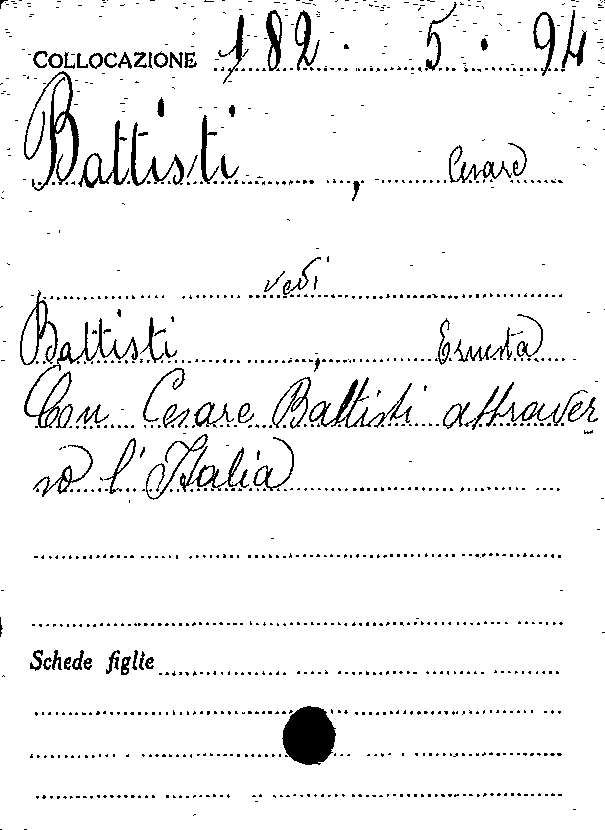 COLLOCAZIONE 182. 5. 94
Battisti, Cesare
vedi
Battisti, Ernesta
Con Cesare Battisti attraver
so l'Italia
Schede figlie